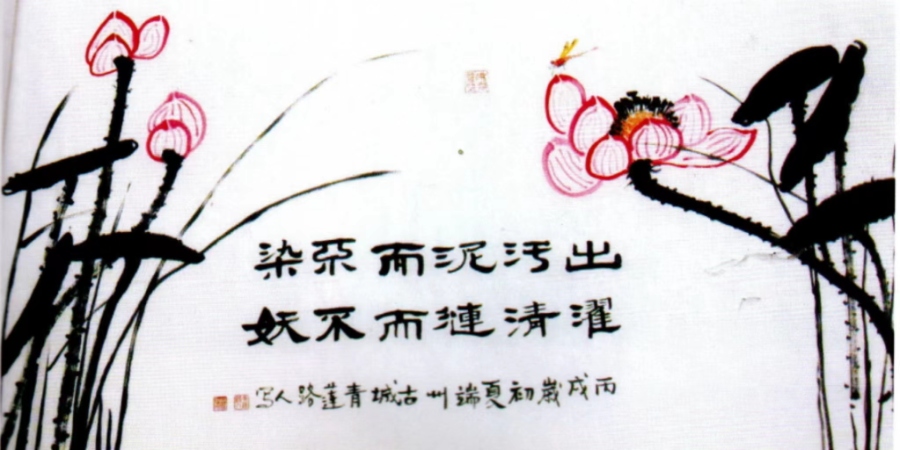 出污泥而不染
濯清漣而不妖
丙戌歲初夏端州古城青蓮路人写